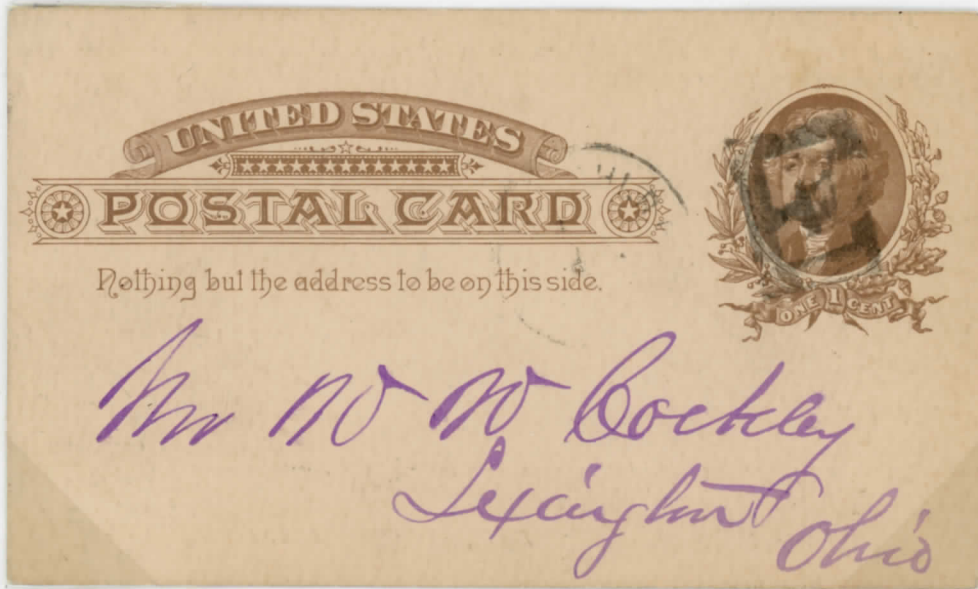 UNITED STATES
POSTAL CARD
Nothing but the address to be on this side.
ONE 1 CENT
Mr W W Cockley
Lexington
Ohio